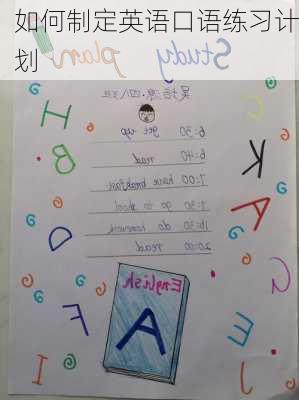 如何制定英语口语练习计
划
Study plan
6:30 get up
6:40 read
7:00 have breakfast
7:30 go to school
16:30 do homework
20:00 read
H
K
B
A
D
G
English
A
F
E
I
J